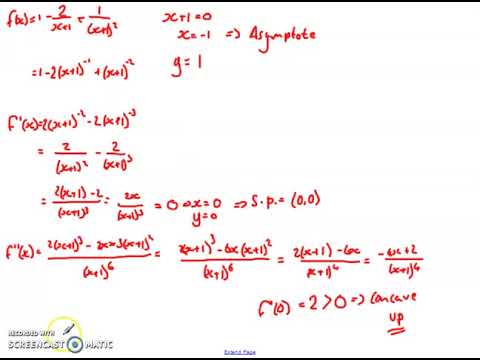 f(x) = 1 - 2/(x+1) + 1/(x+1)²
x+1=0
x=-1 => Asymptote
y = 1
= 1 - 2(x+1)⁻¹ + (x+1)⁻²
f'(x) = 2(x+1)⁻² - 2(x+1)⁻³
= 2/(x+1)² - 2/(x+1)³
= (2(x+1) - 2)/(x+1)³ = 2x/(x+1)³ = 0 => x=0 => S.p. = (0,0)
y=0
f''(x) = (2(x+1)³ - 2x×3(x+1)²)/(x+1)⁶ = (2(x+1)³ - 6x(x+1)²)/(x+1)⁶ = (2(x+1) - 6x)/(x+1)⁴ = (-4x+2)/(x+1)⁴
f''(0) = 2 > 0 => Concave
up
RECORDED WITH
SCREENCAST MATIC
Extend Page